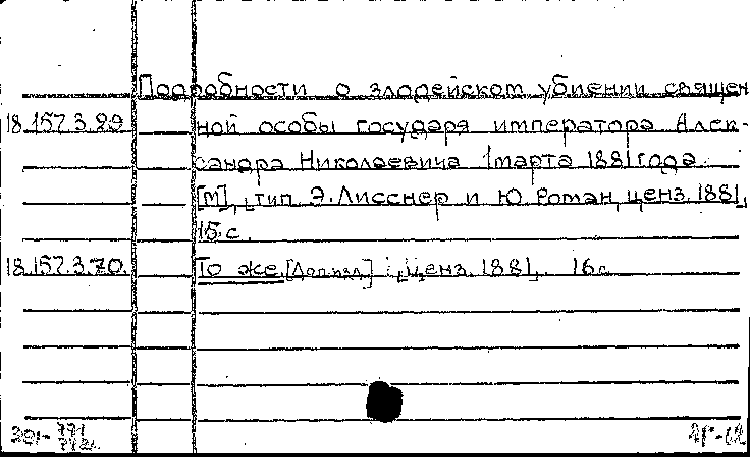 Подробности о злодейском убиении священ
18.157.3.29 ной особы государя императора Алек-
сандра Николаевича 1 марта 1881 года.
[М], тип. Э. Лисснер и Ю. Роман, ценз. 1881,
15 с.
18.157.3.70. То же. [Доп. изд.] ценз. 1881, 16 с.